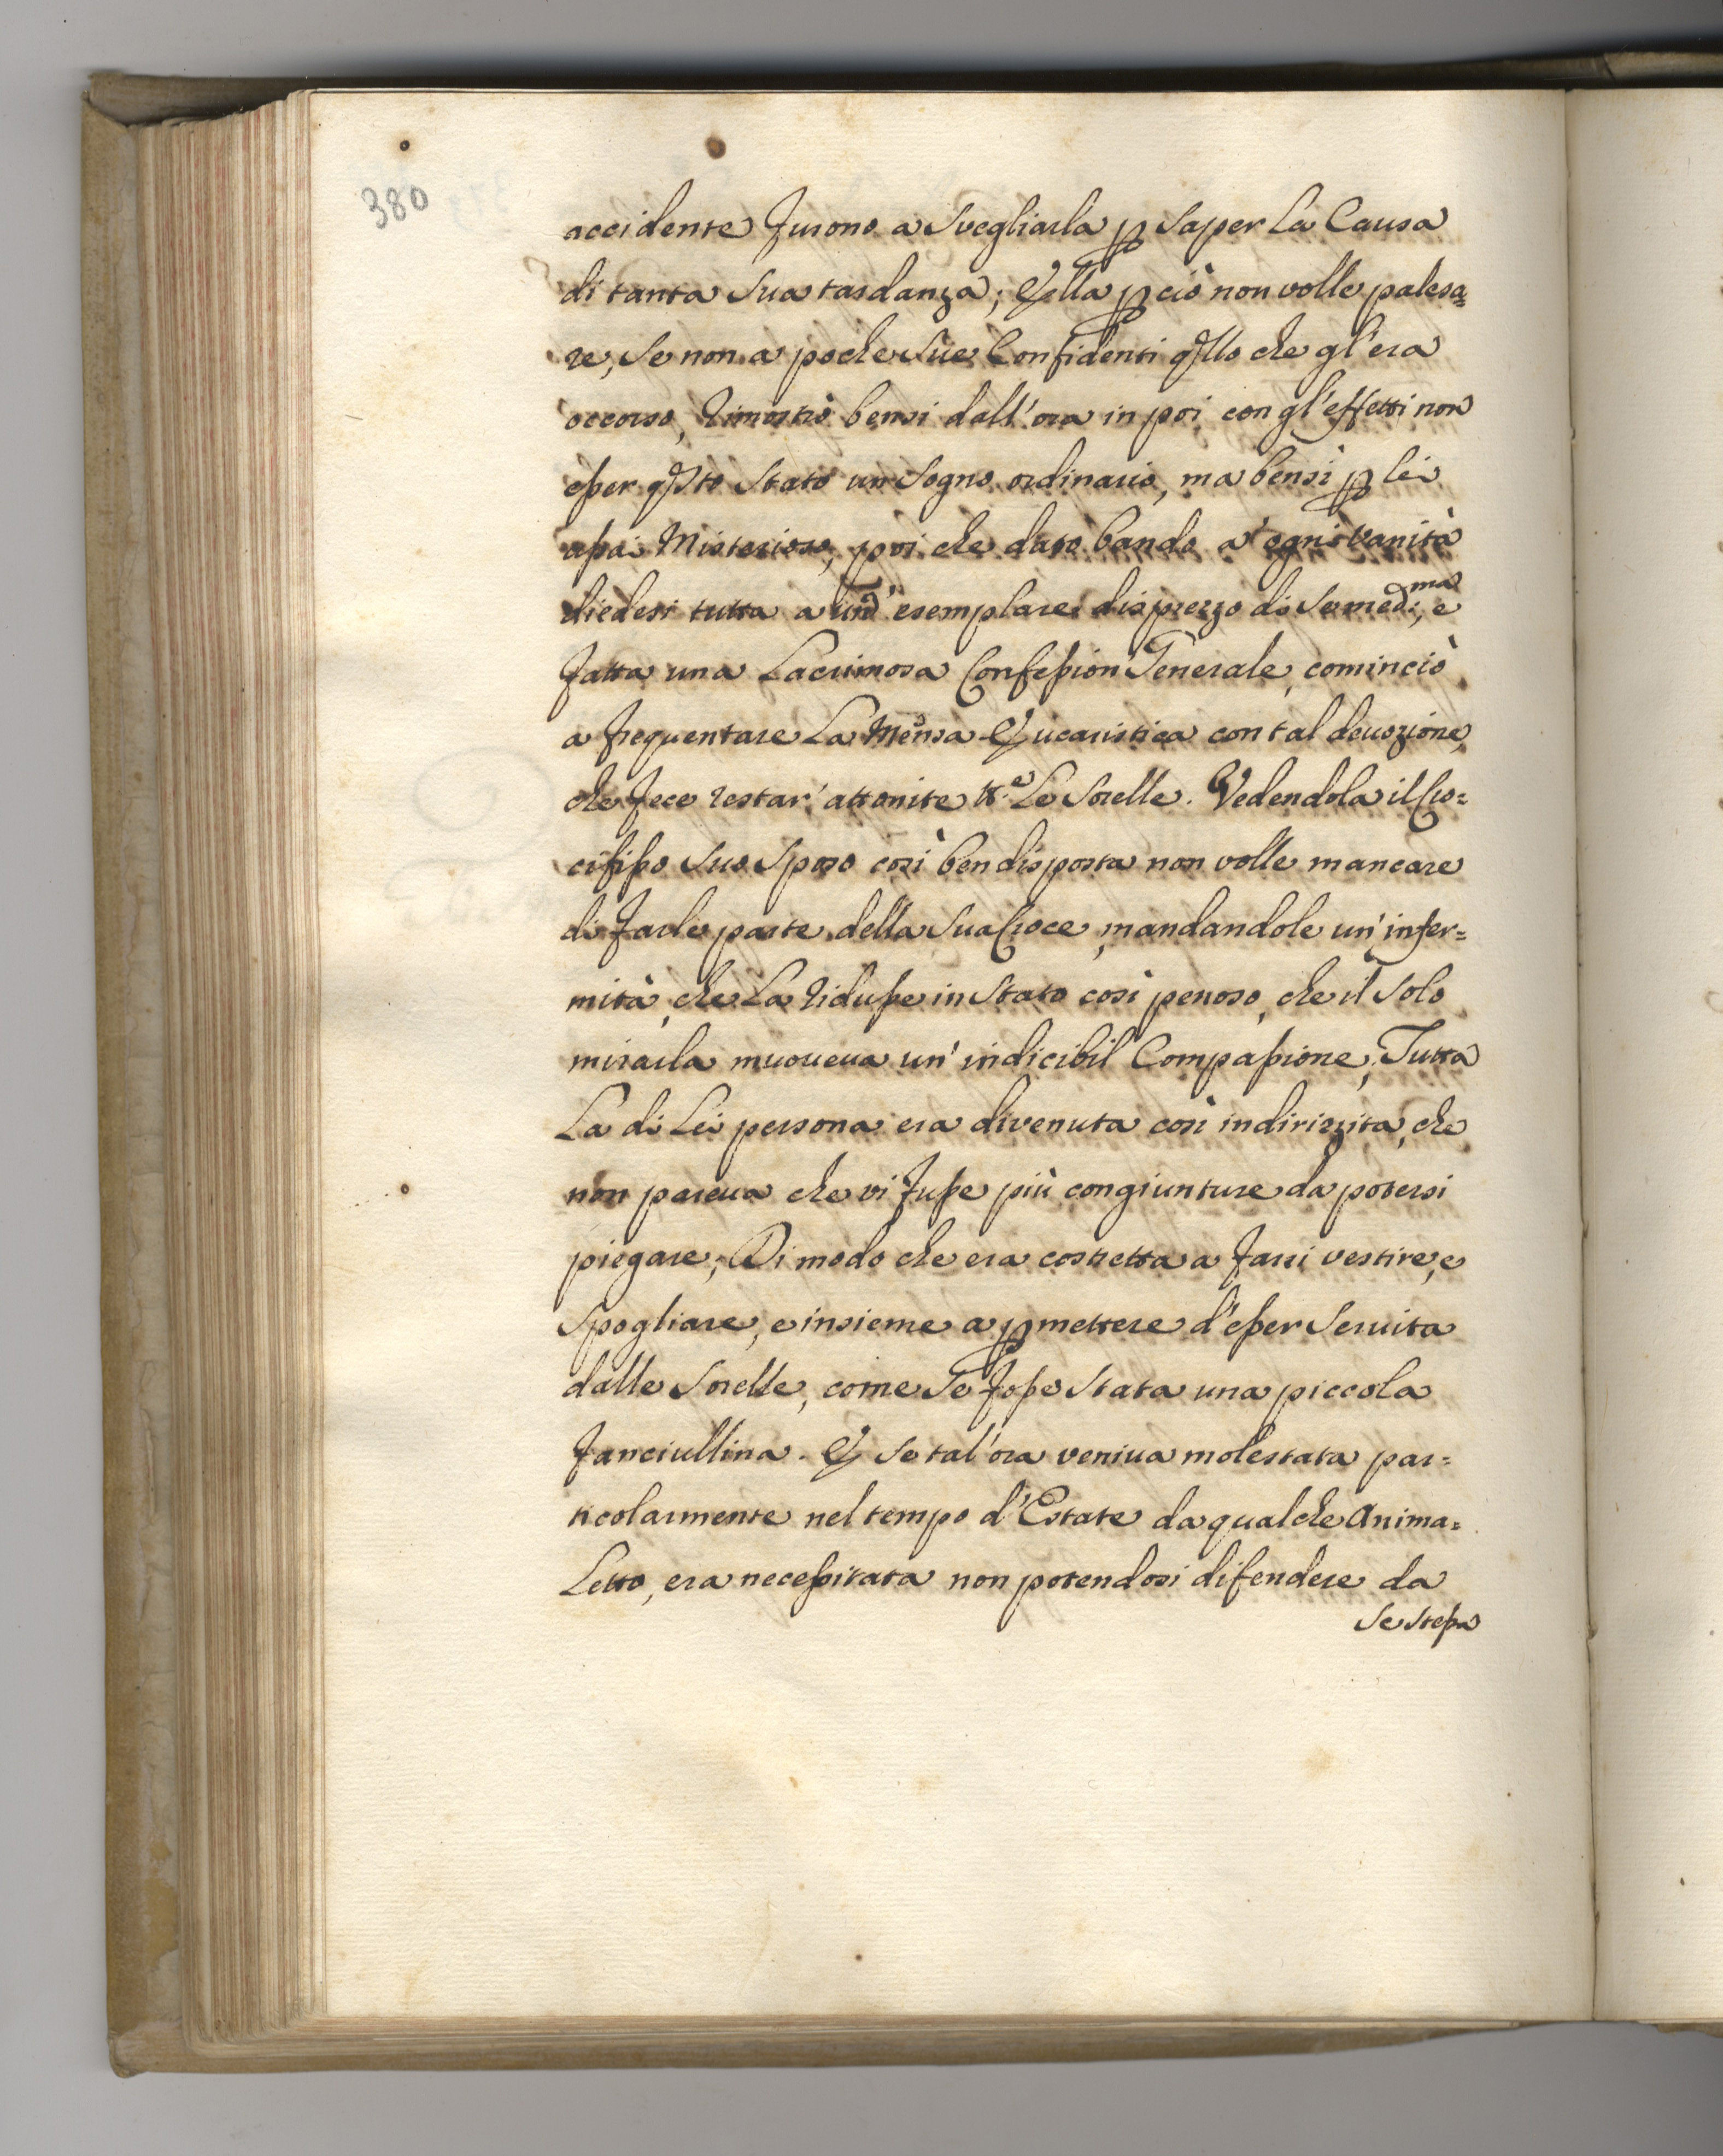 380
accidente furono a svegliarla ꝑ saper la Causa
di tanta sua tardanza; Ella ꝑciò non volle palesa=
re, se non a poche sue Confidenti qllo che gl'era
occorso, dimostrò bensi dall'ora in poi con gl'effetti non
esser qsto stato un sogno ordinario, ma bensì ꝑ lei
assai Misterioso, poi che dato bando a ogni vanità
diedesi tutta a un' esemplare disprezzo di se med.ma, e
fatta una Lacrimosa Confession Generale, cominciò
a frequentare La Mensa Eucaristica con tal devozione,
che fece restar' attonite tt.e Le Sorelle. Vedendola il Cro=
cifisso suo sposo così ben disposta non volle mancare
di farle parte della sua Croce, mandandole un' infer=
mità, che La ridusse in stato così penoso, che il solo
mirarla muoveva un' indicibil Compassione, Tutta
La di Lei persona era divenuta così indirizzita, che
non pareva che vi fusse più congiunture da potersi
piegare; Di modo che era costretta a farsi vestire, e
spogliare, e insieme a ꝑmettere d'esser servita
dalle Sorelle, come se fosse stata una piccola
fanciullina. E se tal'ora veniva molestata par=
ticolarmente nel tempo d'Estate da qualche Anima=
Letto, era necessitata non potendosi difendere da
se stessa